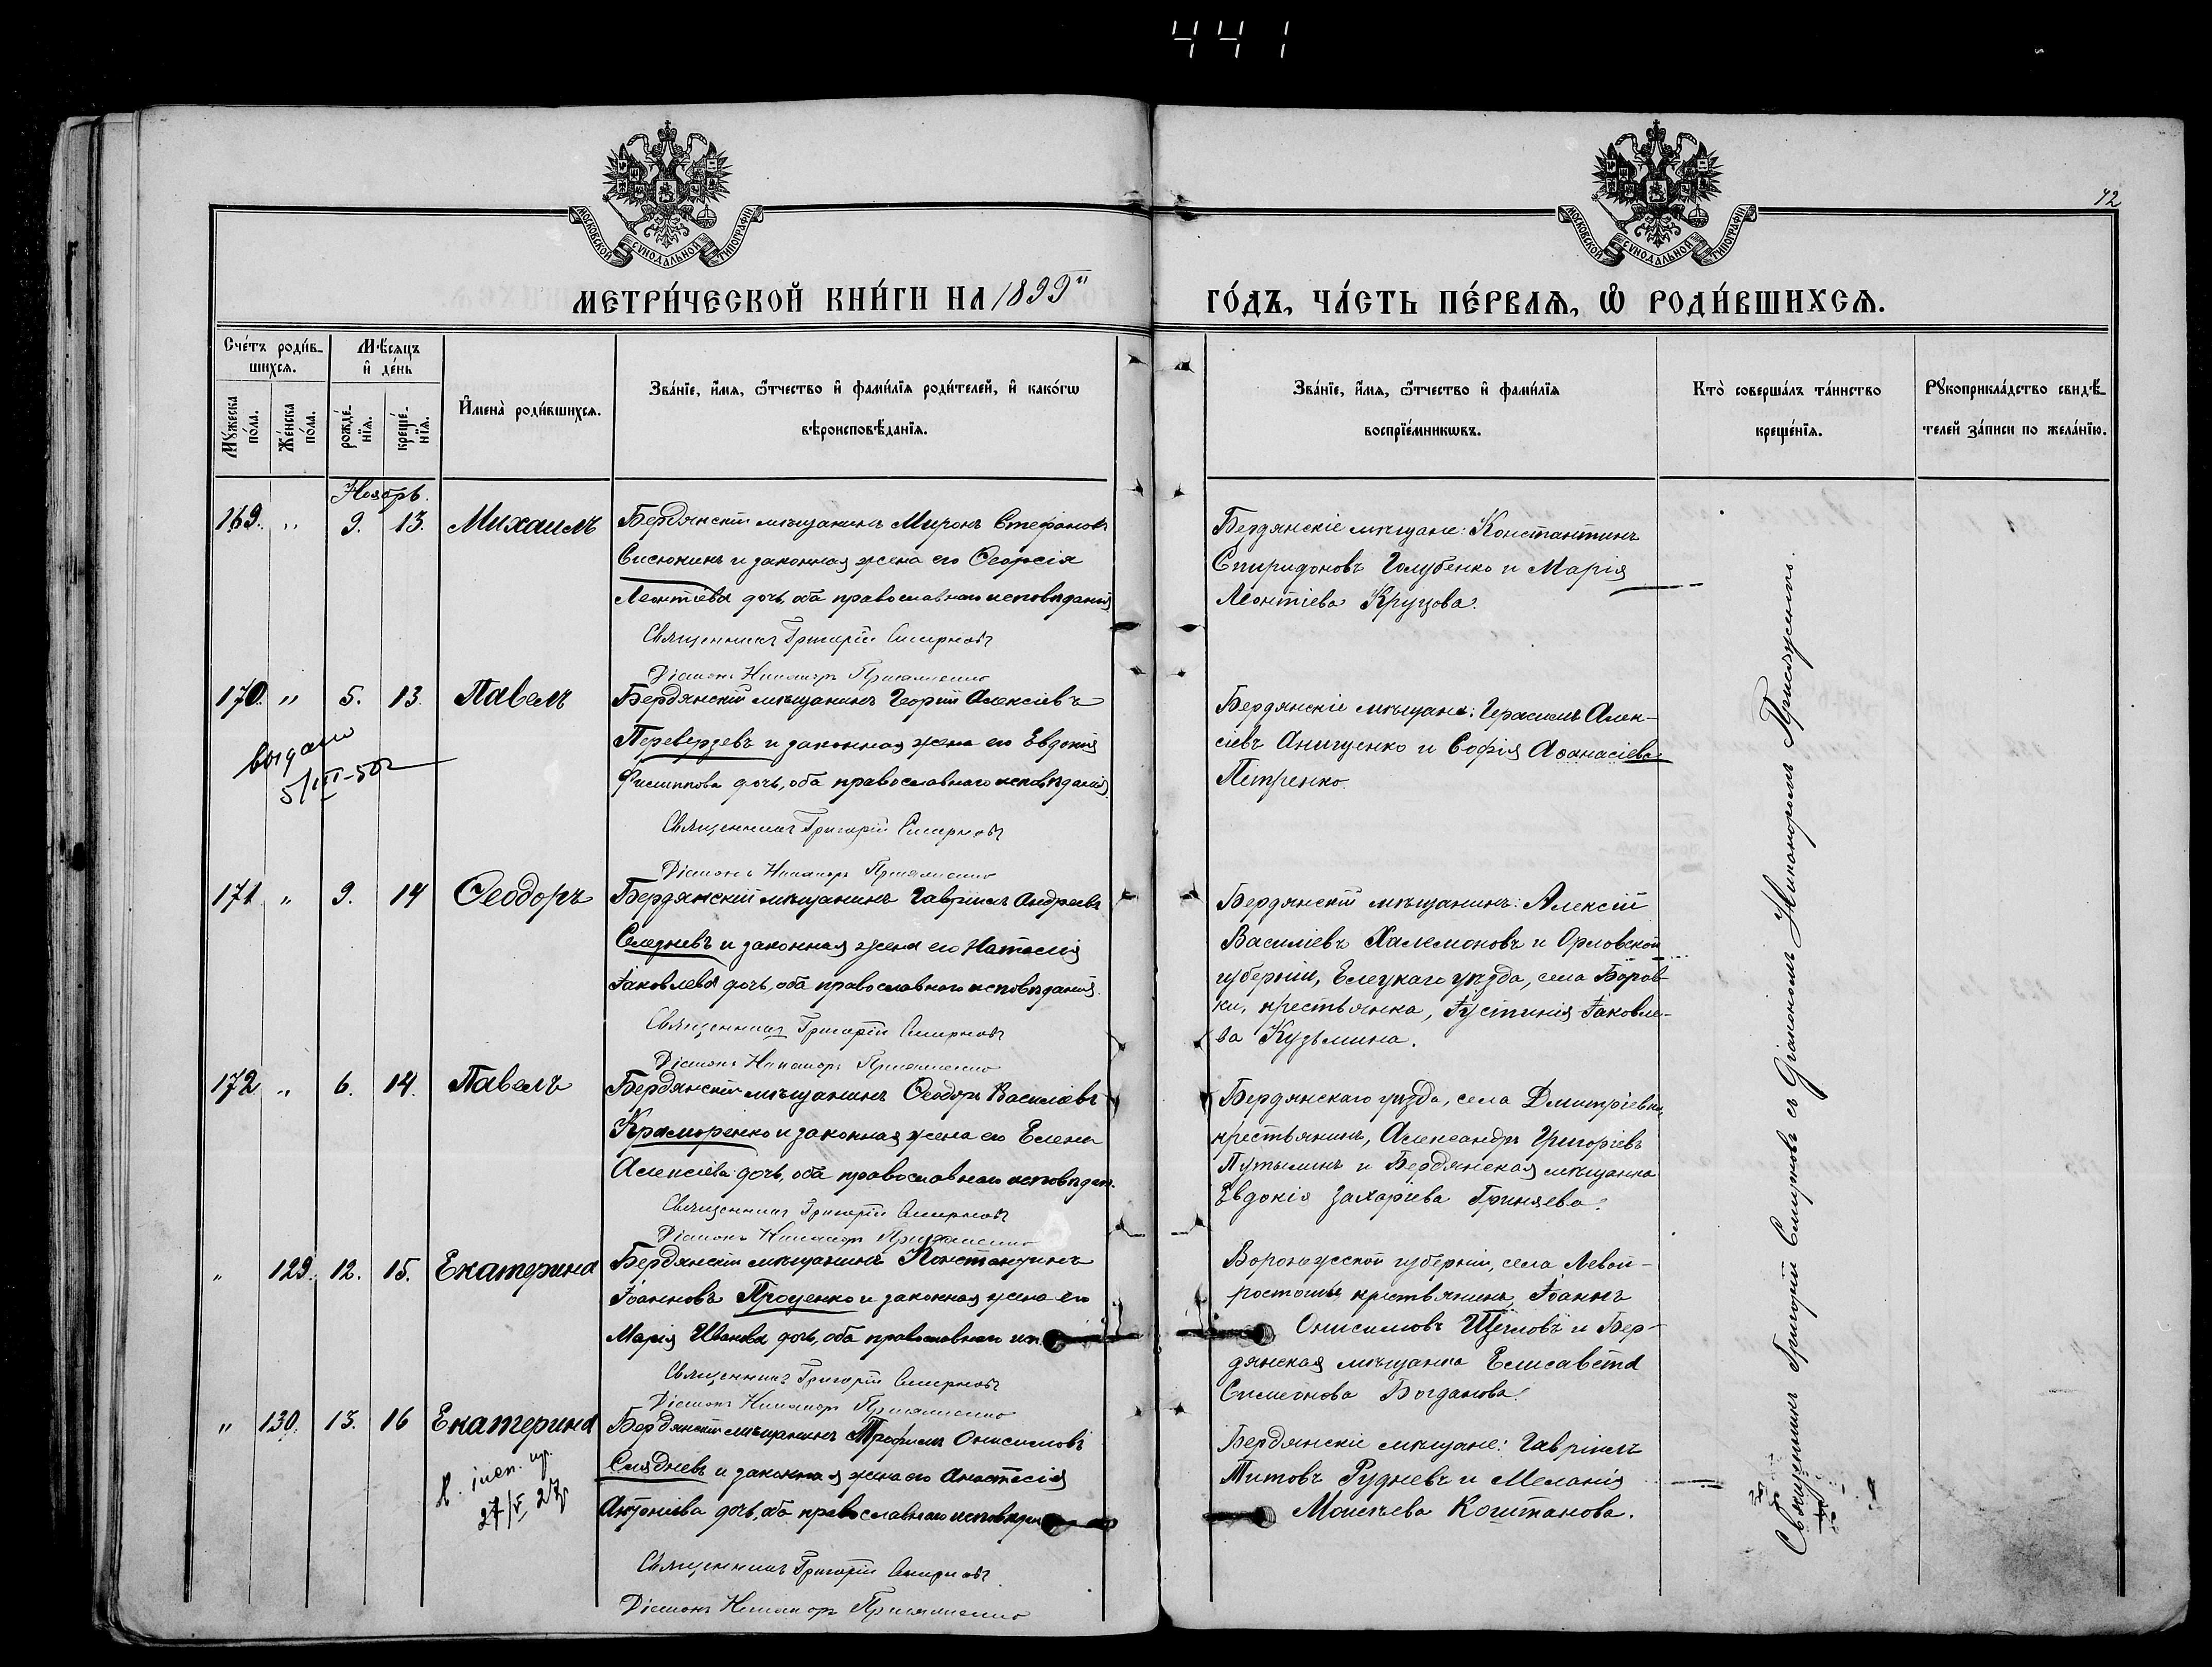 441
42
МОСКОВСКОЙ СѴНОДАЛЬНОЙ ТИПОГРАФІИ
МОСКОВСКОЙ СѴНОДАЛЬНОЙ ТИПОГРАФІИ
МЕТРИ́ЧЕСКОЙ КНИ́ГИ НА 1899й
ГО́ДЪ, ЧА́СТЬ ПЕ́РВАѦ, Ѡ҆ РОДИ́ВШИХСѦ.
Сче́тъ роди́в-
шихсѧ.
Мꙋ́жеска по́ла.
Же́нска по́ла.
Мѣ́сяцъ и҆ де́нь
рожде́-нїѧ.
креще́-нїѧ.
И҆мена̀ роди́вшихсѧ.
Зва́нїе, и҆́мѧ, ѻ҆́тчество и҆ фами́лїѧ роди́телей, и҆ како́гѡ
вѣроисповѣ́данїѧ.
Зва́нїе, и҆́мѧ, ѻ҆́тчество и҆ фами́лїѧ
воспрїе́мникѡвъ.
Кто̀ соверша́лъ та́инство
креще́нїѧ.
Рꙋкоприкла́дство свидѣ́-
телей за́писи по жела́нїю.
Ноябрь.
169. " 9. 13. Михаилъ
Бердянскій мѣщанинъ Миронъ Стефановъ
Сисюкинъ и законная жена его Ѳеорсія
Леонтіева дочь, оба православнаго исповѣданія
Священникъ Григорій Смирновъ
Діаконъ Никаноръ
Бердянскіе мѣщане: Константинъ
Спиридоновъ Голубенко и Марія
Леонтіева Круцова.
170. " 5. 13. Павелъ
выдано
5/III-50г
Бердянскій мѣщанинъ Георгій Алексіевъ
Переверзевъ и законная жена его Евдокія
Филиппова дочь, оба православнаго исповѣданія
Священникъ Григорій Смирновъ
Діаконъ Никаноръ
Бердянскіе мѣщане: Герасимъ Алек-
сіевъ Анищенко и Софія Аѳанасіева
Петренко.
171 " 9. 14 Ѳеодоръ
Бердянскій мѣщанинъ Гавріилъ Андреевъ
Селезневъ и законная жена его Наталія
Іаковлева дочь, оба православнаго исповѣданія.
Священникъ Григорій Смирновъ
Діаконъ Никаноръ
Бердянскій мѣщанинъ: Алексій
Василіевъ Халимоновъ и Орловской
губерніи, Елецкаго уѣзда, села Боров-
ки, крестьянка, Іустинія Іаковле-
ва Кузьмина.
172 " 6. 14. Павелъ
Бердянскій мѣщанинъ Ѳеодоръ Василіевъ
Краморенко и законная жена его Елена
Алексіева дочь, оба православнаго исповѣдан.
Священникъ Григорій Смирновъ
Діаконъ Никаноръ
Бердянскаго уѣзда, села Дмитріевки,
крестьянинъ, Александръ Григоріевъ
Путылинъ и Бердянская мѣщанка
Евдокія Захаріева Гриняева.
" 129. 12. 15. Екатерина
Бердянскій мѣщанинъ Константинъ
Іоанновъ Проценко и законная жена его
Марія Иванова дочь, оба православнаго исп.
Священникъ Григорій Смирновъ
Діаконъ Никаноръ
Воронежской губерніи, села Левой-
россоши крестьянинъ, Іоаннъ
Онисимовъ Щегловъ и Бер-
дянская мѣщанка Елисавета
Симеонова Богданова.
" 130. 13. 16 Екатерина
27/V 27г
Бердянскій мѣщанинъ Трофимъ Онисимовъ
Слядневъ и законная жена его Анастасія
Антоніева дочь, оба православнаго исповѣдан
Священникъ Григорій Смирновъ
Діаконъ Никаноръ
Бердянскіе мѣщане: Гавріилъ
Титовъ Рудневъ и Меланія
Моисѣева Коштанова.
Священникъ Григорій Смирновъ съ Діакономъ Никаноромъ